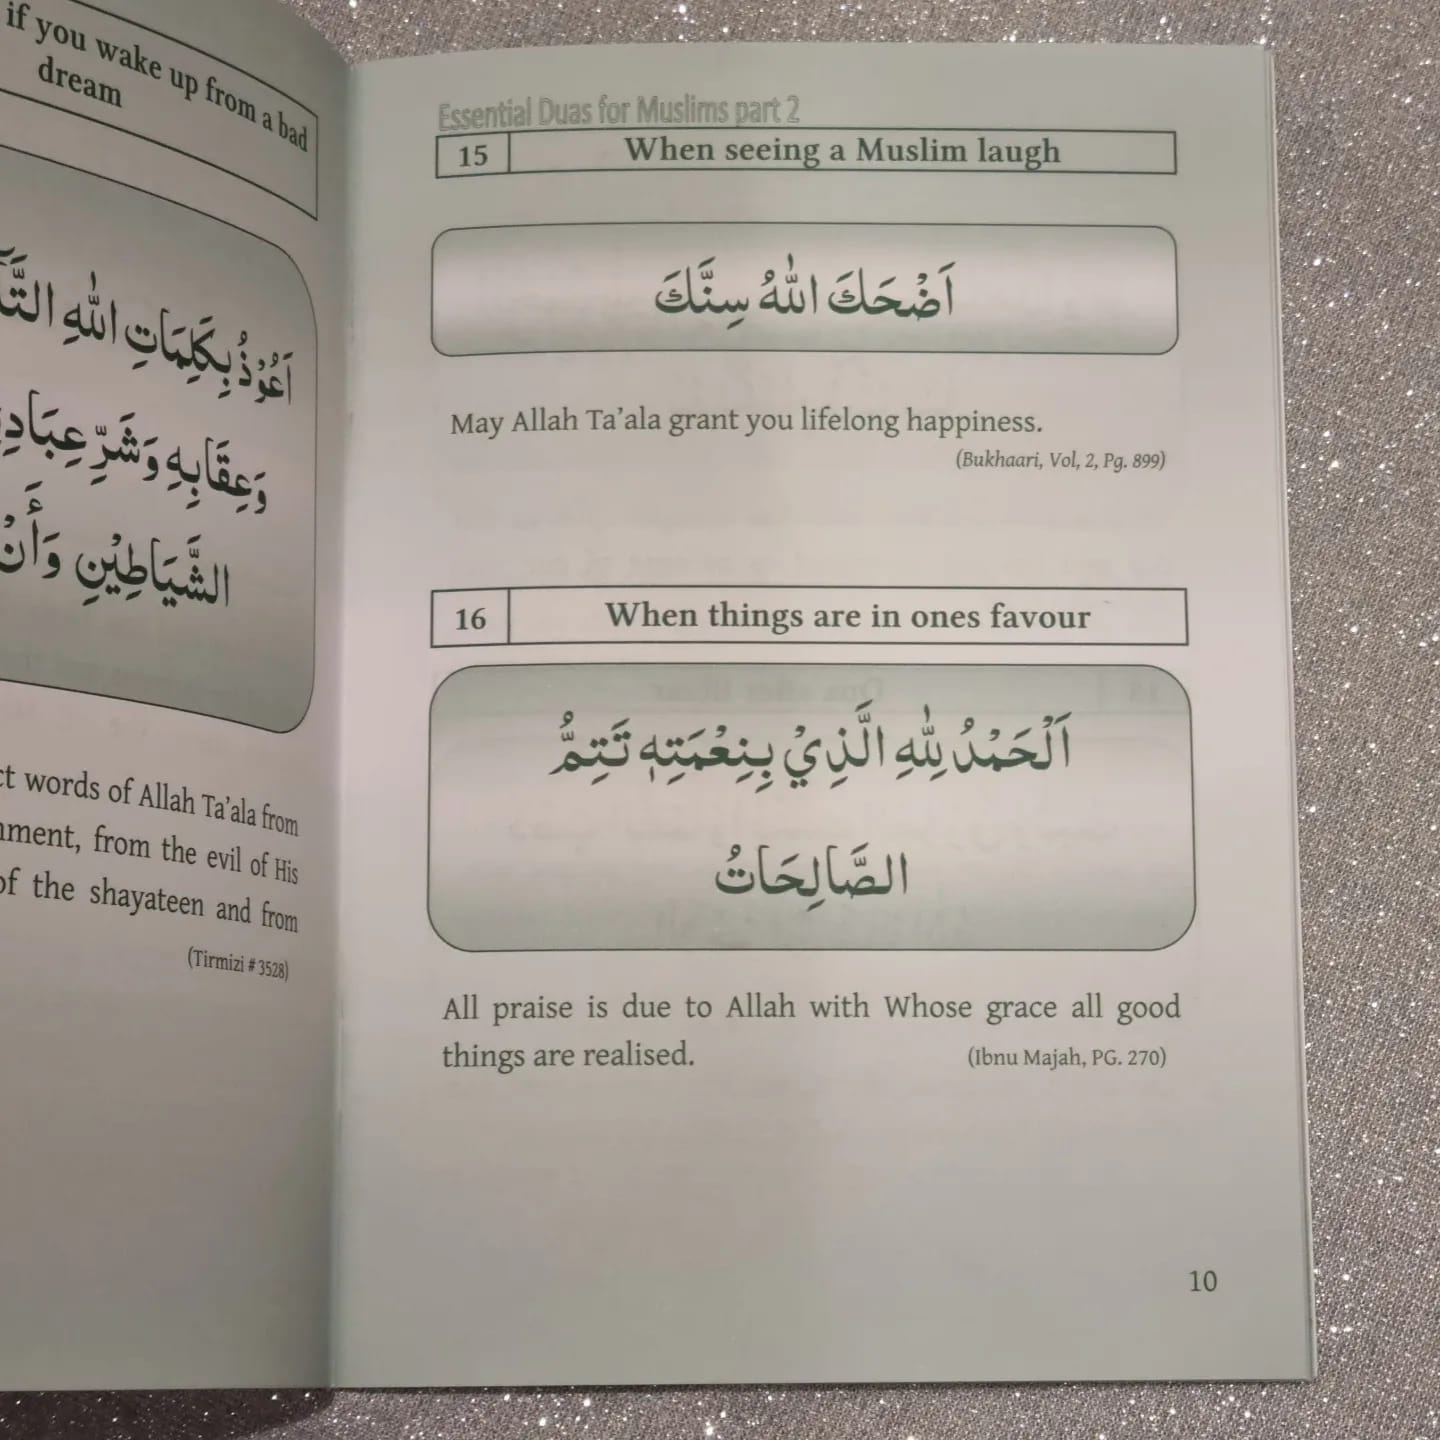 if you wake up from a bad
dream
اَعُوْذُ بِكَلِمَاتِ اللّٰهِ
وَعِقَابِهٖ وَشَرِّ
الشَّيَاطِيْنِ وَأَنْ
words of Allah Ta’ala from
from the evil of His
of the shayateen and from
(Tirmizi # 3528)
Essential Duas for Muslims part 2
15 When seeing a Muslim laugh
اَضْحَكَ اللّٰهُ سِنَّكَ
May Allah Ta’ala grant you lifelong happiness.
(Bukhaari, Vol, 2, Pg. 899)
16 When things are in ones favour
اَلْحَمْدُ لِلّٰهِ الَّذِيْ بِنِعْمَتِهٖ تَتِمُّ
الصَّالِحَاتُ
All praise is due to Allah with Whose grace all good
things are realised. (Ibnu Majah, PG. 270)
10